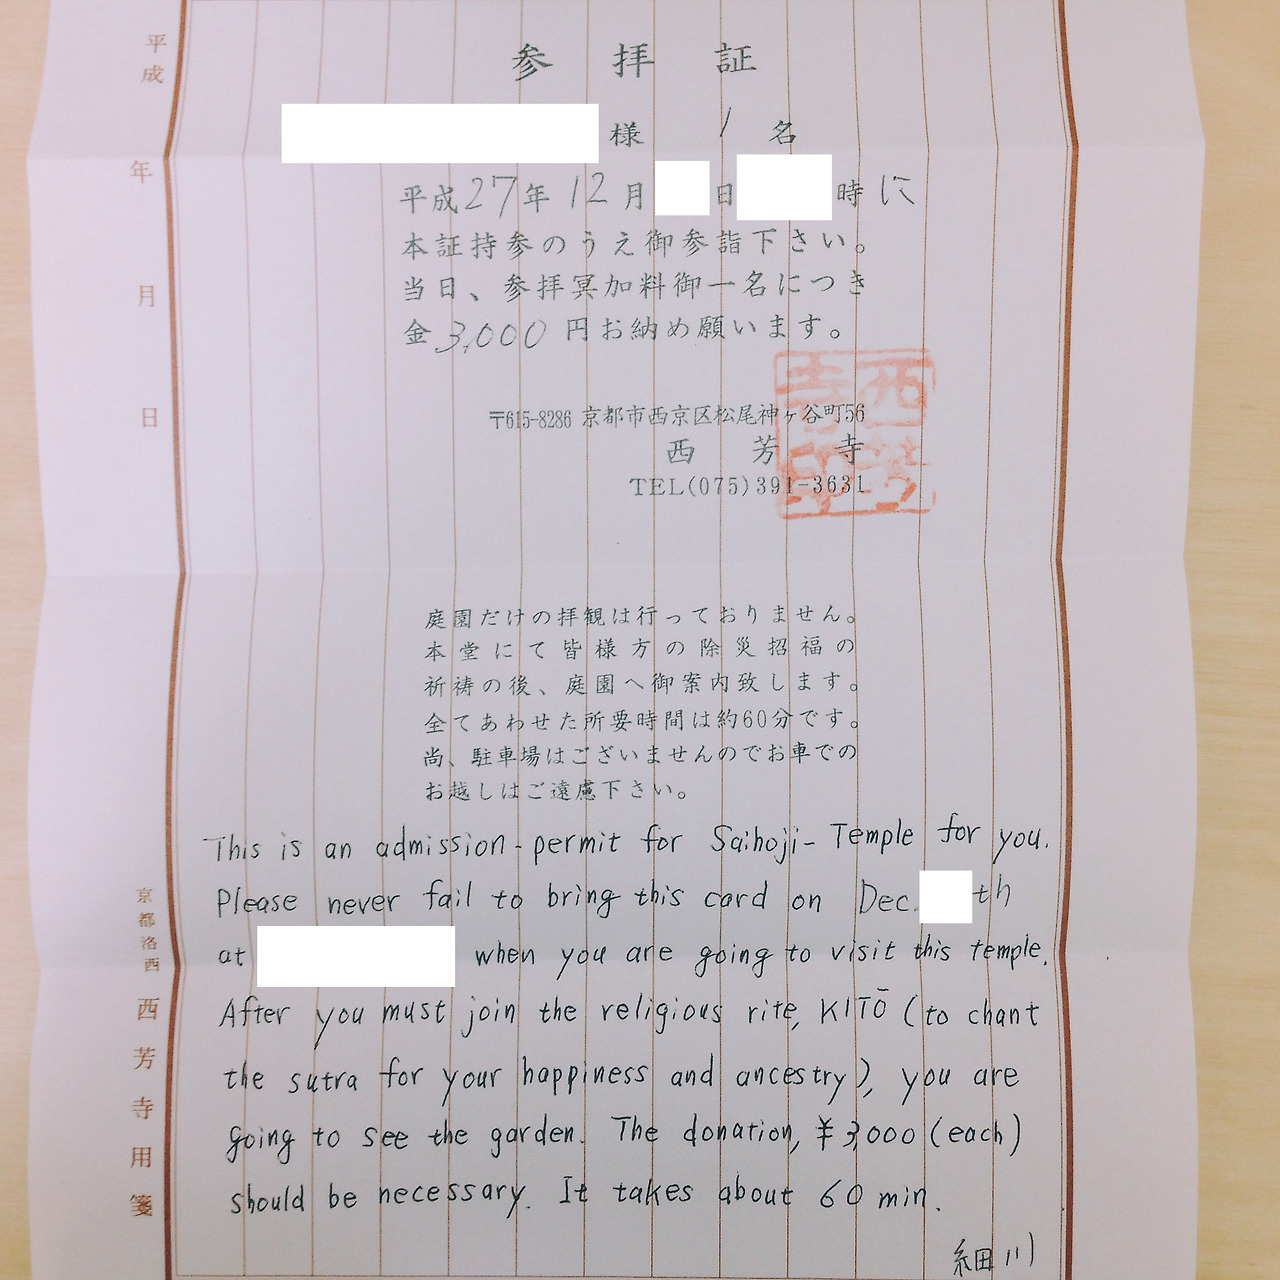 参拝証
様 1名
平成27年12月 日 時に
本証持参のうえ御参詣下さい。
当日、参拝冥加料御一名につき
金3,000円お納め願います。
〒615-8286 京都市西京区松尾神ヶ谷町56
西芳寺
TEL(075)391-3631
西芳寺印
庭園だけの拝観は行っておりません。
本堂にて皆様方の除災招福の
祈祷の後、庭園へ御案内致します。
全てあわせた所要時間は約60分です。
尚、駐車場はございませんのでお車での
お越しはご遠慮下さい。
This is an admission-permit for Saihoji-Temple for you.
Please never fail to bring this card on Dec. th
at when you are going to visit this temple.
After you must join the religious rite, KITŌ (to chant
the sutra for your happiness and ancestry), you are
going to see the garden. The donation, ¥3,000 (each)
should be necessary. It takes about 60 min.
細川
平成 年 月 日
京都洛西 西芳寺用箋